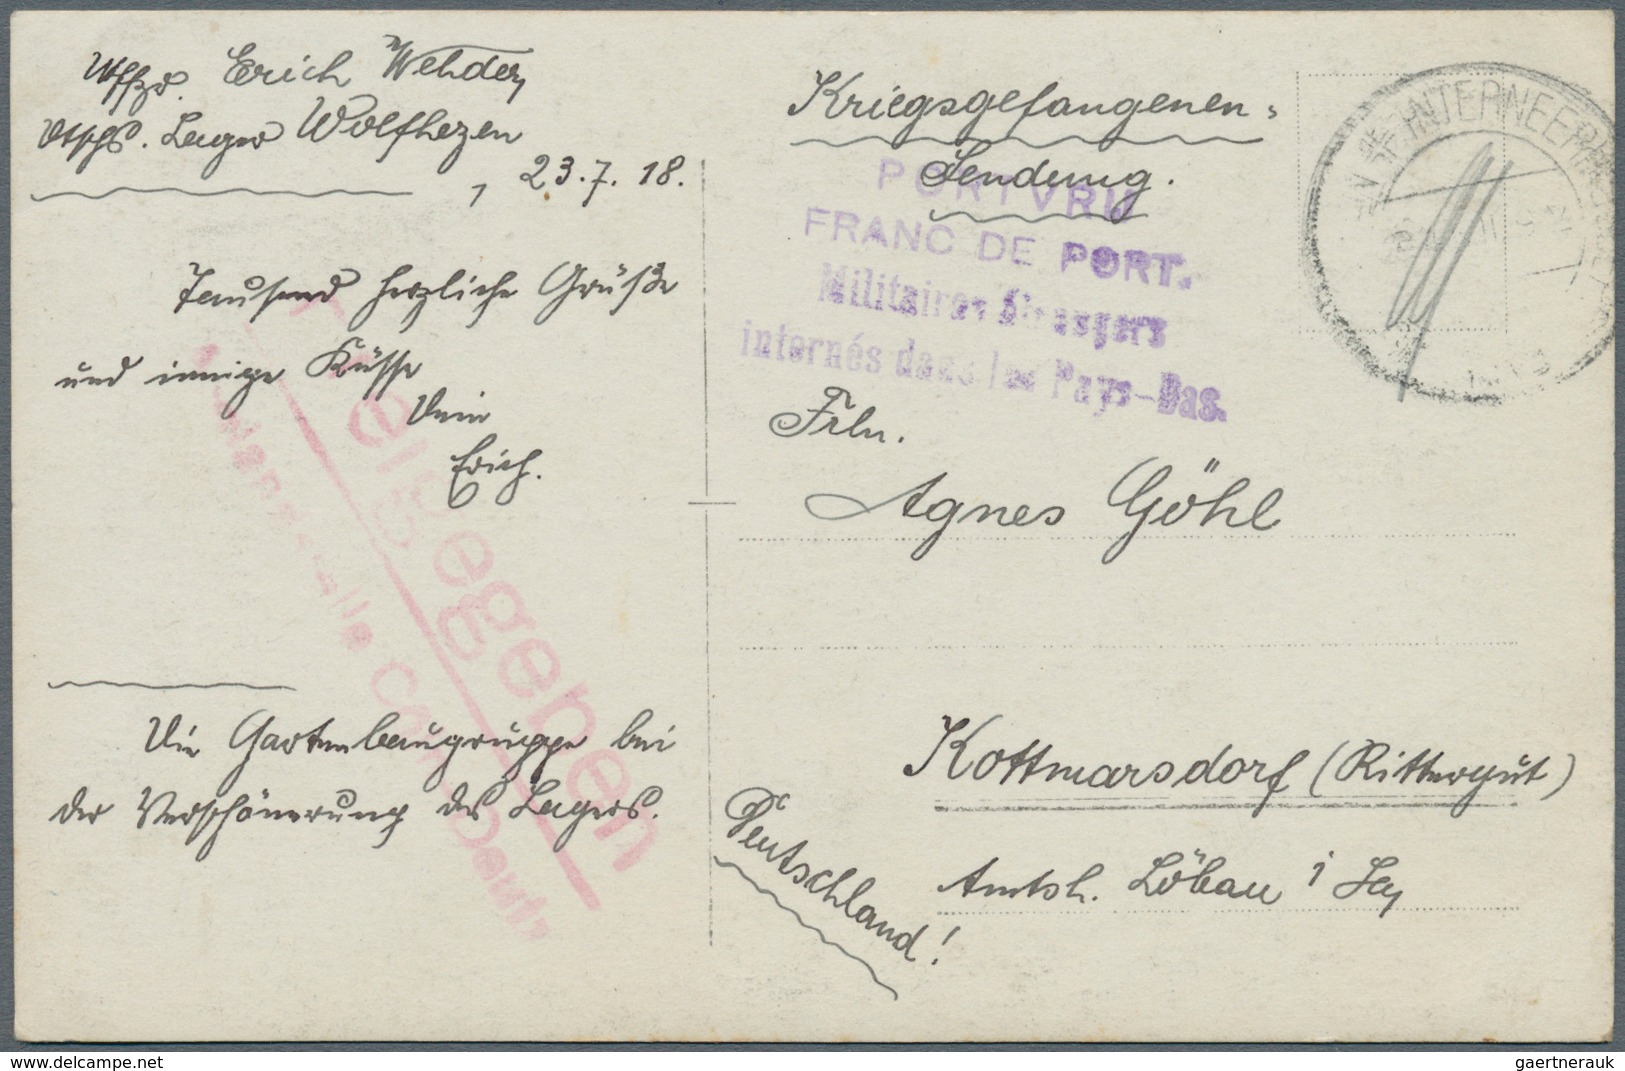 Uffzr. Erich Wehder,
Dtsch. Lager Wolfhezen
, 23.7.18.
Tausend herzliche Grüße
und innige Küsse
Dein
Erich.
Die Gartenbaugruppe bei
der Verschönerung des Lagers.
Kriegsgefangenen-
Sendung.
PORTVRIJ
FRANC DE PORT.
Militaires étrangers
internés dans les Pays-Bas.
INTERNEE
Frln.
Agnes Göhl
Kottmarsdorf (Rittergut)
Amtsh. Löbau i Sa,
Deutschland!
Freigegeben
www.delcampe.net
gaertnerauk